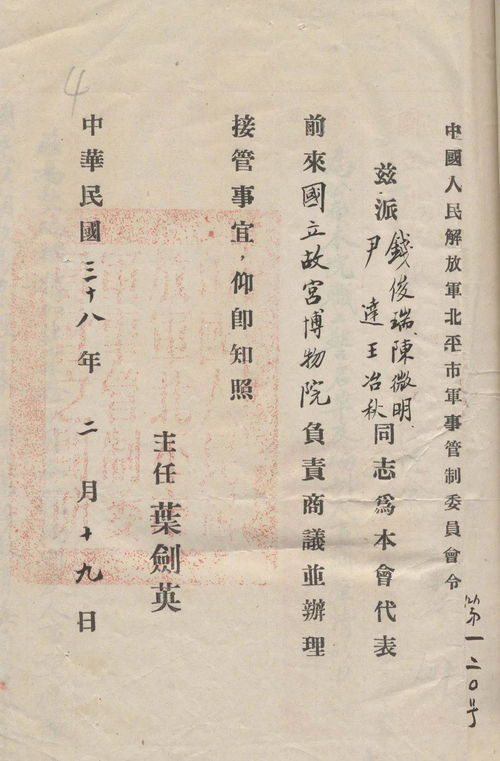 中國人民解放軍北平市軍事管制委員會令
第一二〇号
兹派錢俊瑞、陳微明、
尹達、王冶秋同志爲本會代表
前來國立故宮博物院負責商議並辦理
接管事宜，仰卽知照
主任葉劍英
中華民國三十八年二月十九日
4